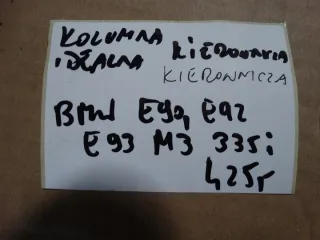 KOLUMNA KIEROWNICZA
IDEALNA KIEROWNICZA
BMW E90, E92
E93 M3 335i
425r